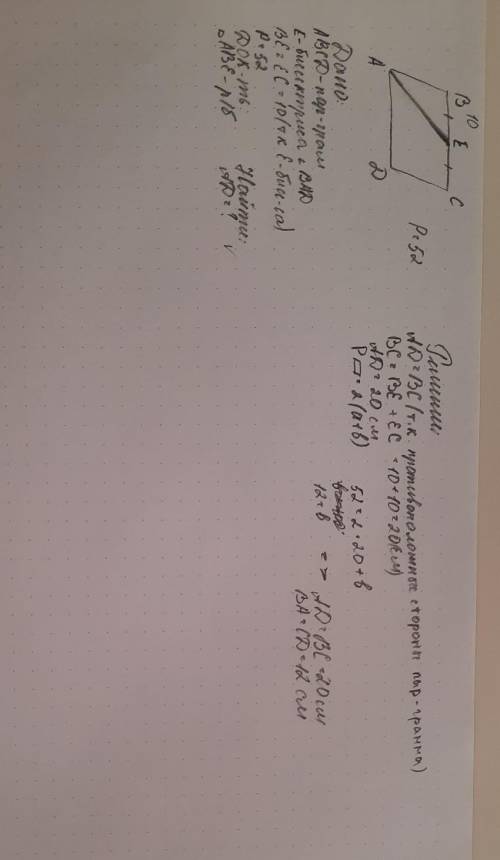 B 10
E
A
C
D
P=52
Дано:
ABCD-пар-грам
E-биссектриса ∠ BAD
BE=EC=10(т.к E-бис-са)
P=52
Док-ть:
△ABE-р/б
Найти:
AD=?
Решение:
AD=BC(т.к. противоположные стороны пар-грамма)
BC=BE+EC =10+10=20(см)
AD=20 см
P▱=2(a+b)
52=2·20+b
12=b
=> AD=BC=20см
BA=CD=12 см